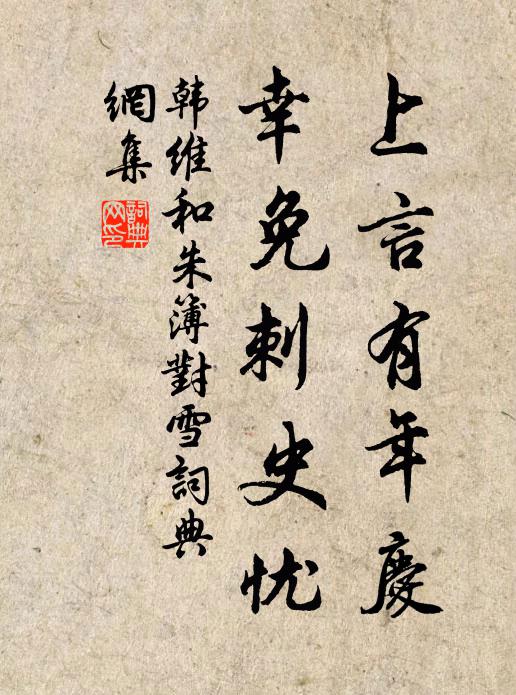 上言有年慶
幸免刺史忧
韩維和朱簿對雪詞典
網集
詞典网印